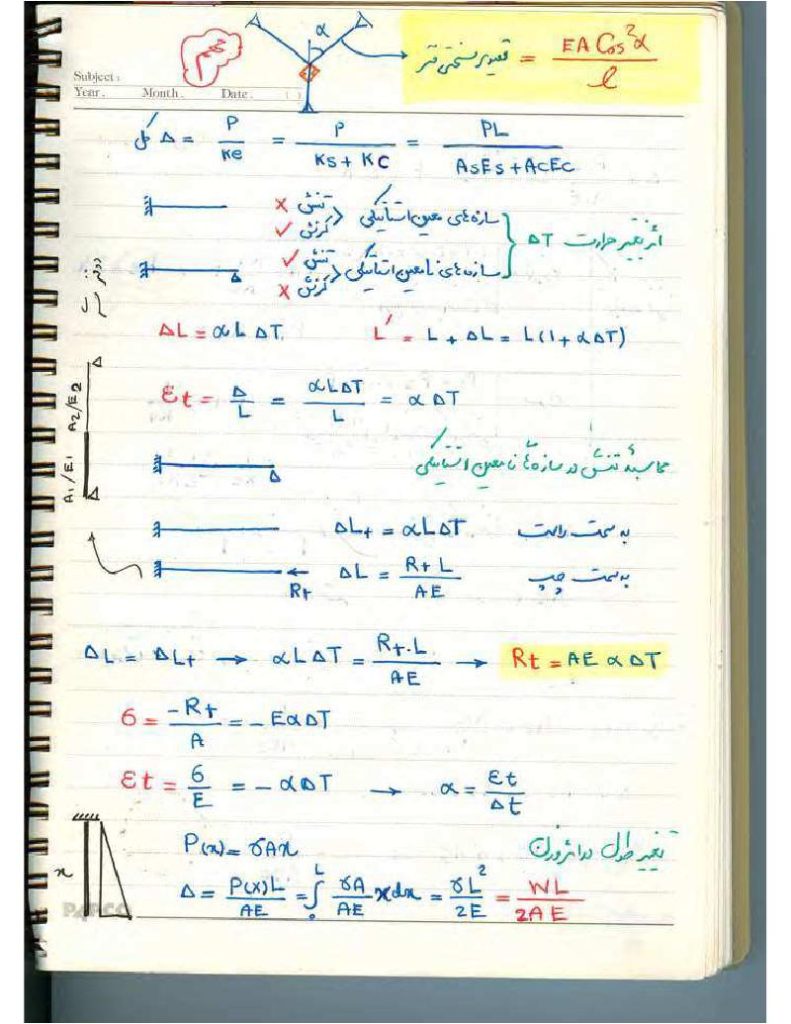 مهم
α
تعبیر سختی فنر = EA Cos²α / l
Subject:
Year. Month. Date. ( )
کل Δ = P / Ke = P / (Ks + Kc) = PL / (AsEs + AcEc)
اثر تغییر حرارت ΔT
سازه‌های معین استاتیکی
تنش ×
کرنش ✓
سازه‌های نامعین استاتیکی
تنش ✓
کرنش ×
ΔL = αLΔT. L' = L + ΔL = L(1 + αΔT)
εt = Δ / L = αLΔT / L = αΔT
A1/E1 A2/E2
محاسبهٔ تنش در سازه‌های نامعین استاتیکی
ΔLt = αLΔT به سمت راست
Rt ΔL = Rt L / AE به سمت چپ
ΔL = ΔLt → αLΔT = Rt.L / AE → Rt = AEαΔT
6 = -Rt / A = -EαΔT
εt = 6 / E = -αΔT → α = εt / Δt
تغییر طول در اثر وزن
P(x) = γAx
x
Δ = P(x)L / AE = ∫₀ᴸ γA / AE xdx = γL² / 2E = WL / 2AE
PAPCO